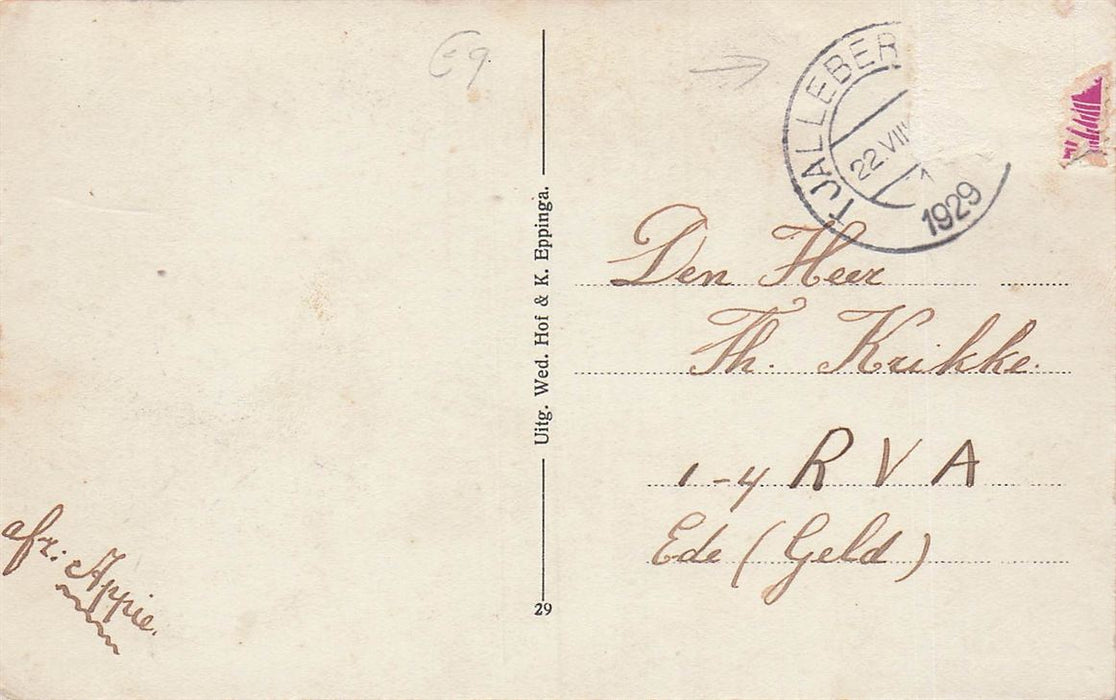 E9
TJALLEBER
22.VIII
1929
Uitg. Wed. Hof & K. Eppinga.
29
Den Heer
Th. Krikke.
1-4 R V A
Ede (Geld)
afz: Appie.